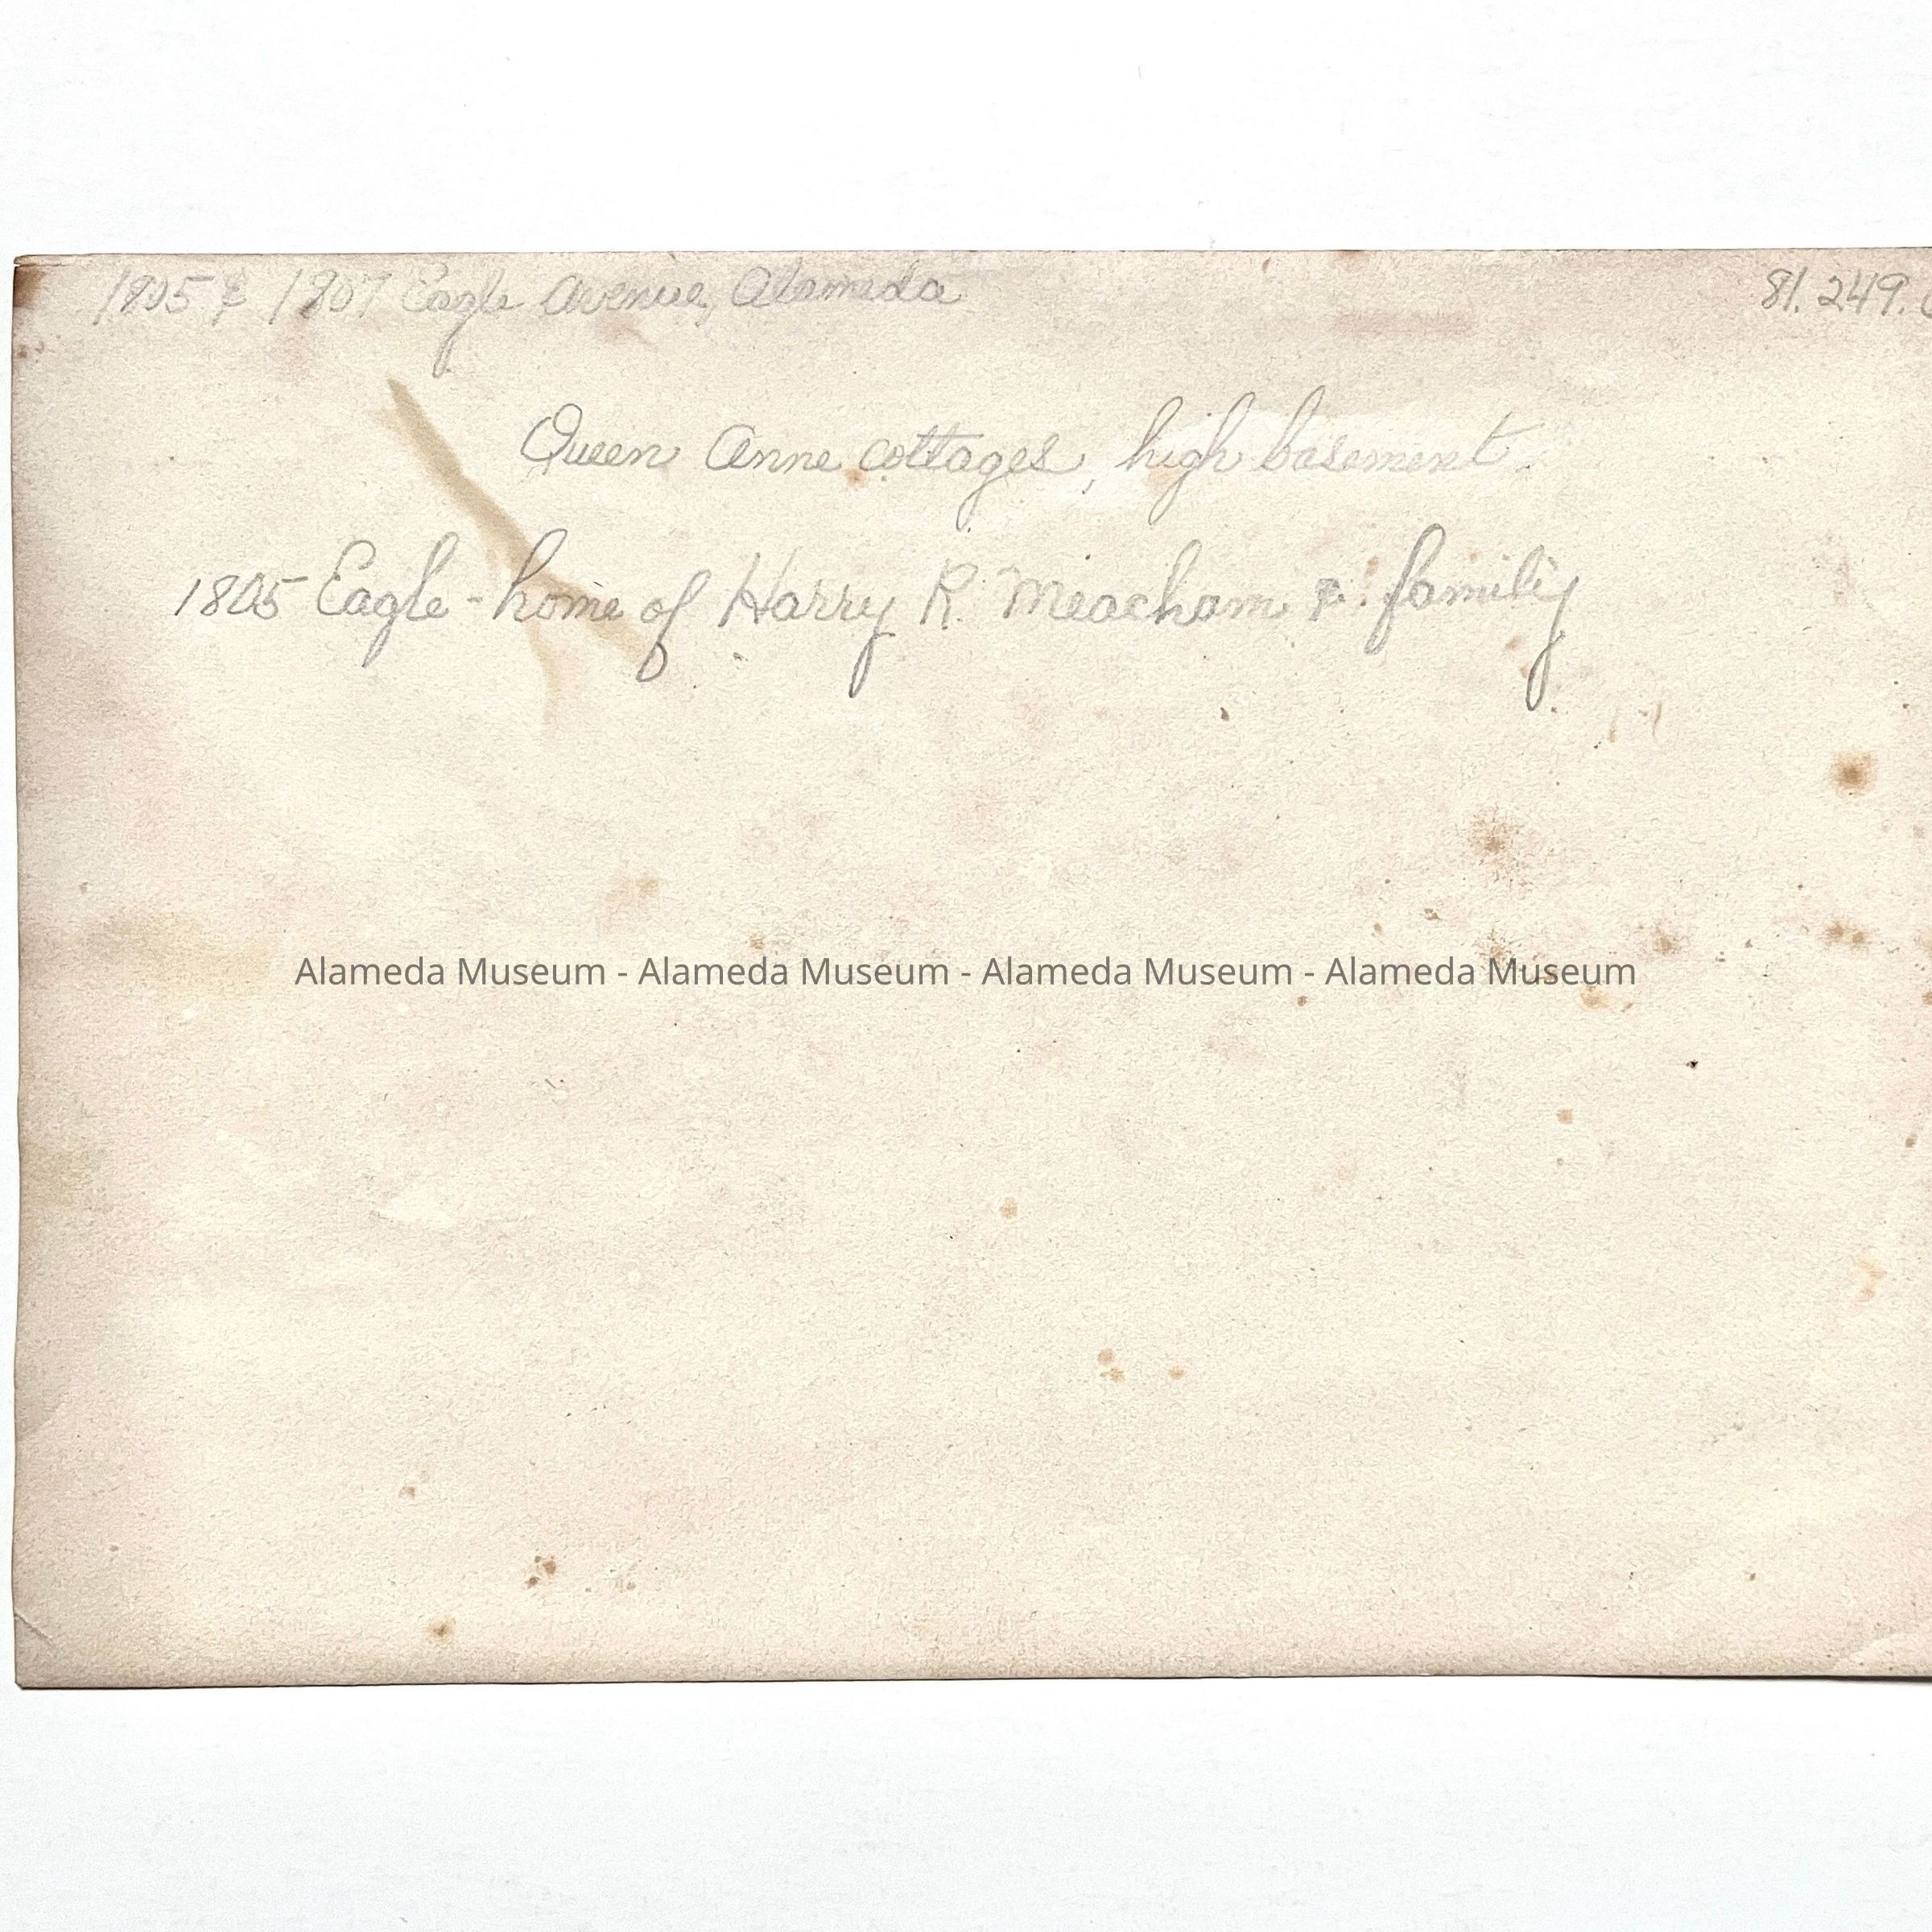 1805 & 1807 Eagle Avenue, Alameda 81.249.
Queen Anne cottages, high basement
1805 Eagle - home of Harry R. Meacham & family
Alameda Museum - Alameda Museum - Alameda Museum - Alameda Museum